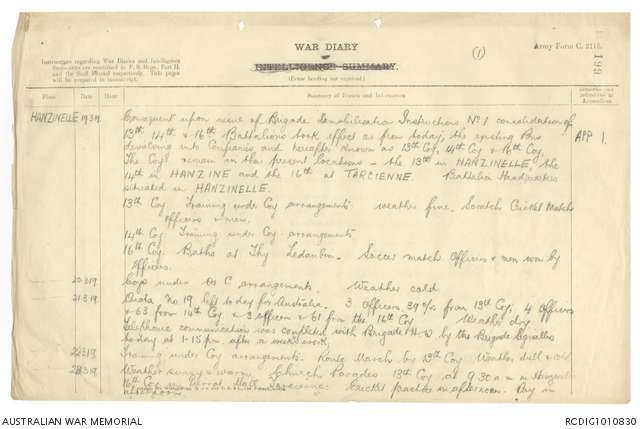 WAR DIARY
or
INTELLIGENCE SUMMARY.
(Erase heading not required.)
(1)
Army Form C. 2118.
199
Instructions regarding War Diaries and Intelligence
Summaries are contained in F. S. Regs., Part II.
and the Staff Manual respectively. Title pages
will be prepared in manuscript.
Place
Date
Hour
Summary of Events and Information
Remarks and
references to
Appendices
HANZINELLE 19319 Consequent upon issue of Brigade Demobilisation Instructions No 1 consolidation of APP 1.
13th 14th & 16th Battalions took effect as from today, the existing Bns
devolving into Companies and hereafter known as 13th Coy, 14th Coy & 16th Coy.
The Coys remain in their present locations - the 13th in HANZINELLE, the
14th in HANZINE and the 16th at TARCIENNE. Battalion Headquarters
situated in HANZINELLE.
13th Coy Training under Coy arrangements weather fine. Scratch Cricket Match
Officers v men.
14th Coy Training under Coy arrangements
16th Coy Baths at Thy Le Soccer match Officers v men won by
Officers.
20319 Coys under Os C arrangements. Weather cold
21319 Quota No 19 left today for Australia. 3 Officers 39 o/rs from 13th Coy, 4 Officers
& 63 from 14th Coy & 3 officers & 61 from the 16th Coy Weather dry
Telephone communication was completed with Brigade HQ by the Brigade Signallers
today at 1-15 pm after a week's work.
22319 Training under Coy arrangements. Route March by 13th Coy Weather dull & cold
23319 Weather sunny & warm. Church Parades 13th Coy at 9.30 a m in
16th Coy in Hall Tarcienne. Cricket practice in afternoon. Pay in
afternoon
AUSTRALIAN WAR MEMORIAL
RCDIG1010830